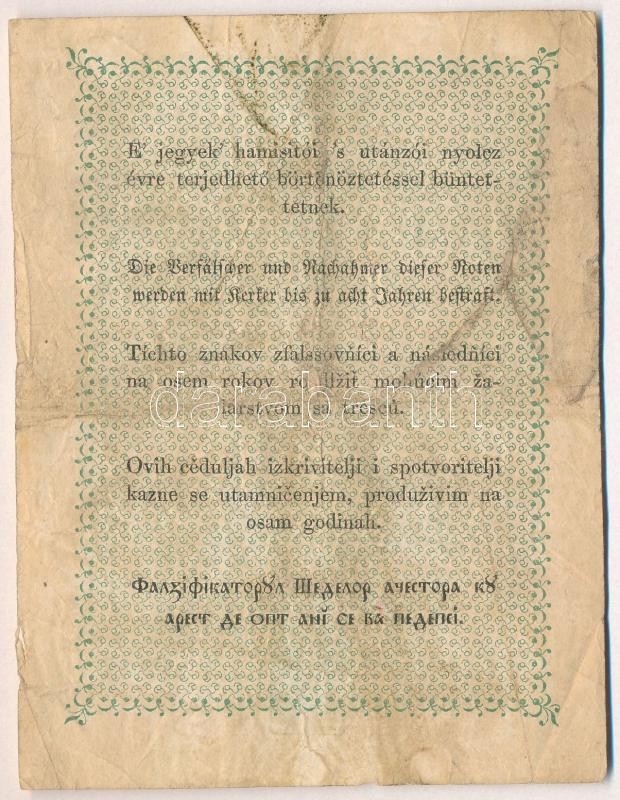 E' jegyek' hamisítói 's utánzói nyolcz
évre terjedhető börtönöztetéssel büntet-
tetnek.
Die Verfälscher und Nachahmer dieser Noten
werden mit Kerker bis zu acht Jahren bestraft.
Tíchto znákov zfalssovňíci a následňíci
na osem rokov ro
mohúcím ža-
lárstvom sa trescú.
darabanth
Ovih céduljah izkrivitelji i spotvoritelji
kazne se utamničenjem, produživim na
osam godinah.
Фалꙃіфікаторꙋл Шеделор ачестора кꙋ
арест де опт анї се ва педепсі.